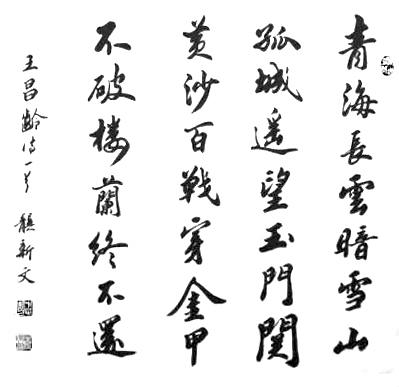 青海長雲暗雪山
孤城遥望玉門関
黄沙百戦穿金甲
不破楼蘭終不還
王昌齡诗一首 新文